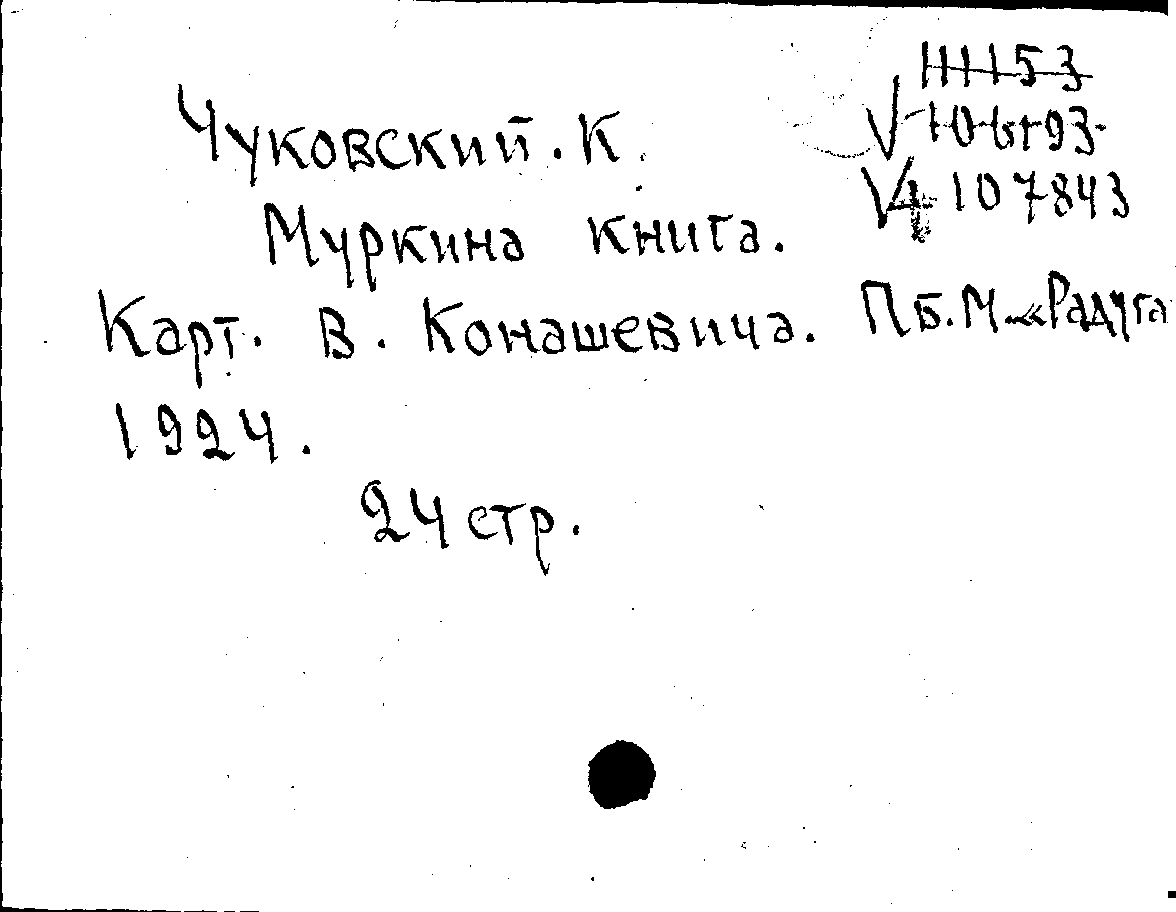 111153
Чуковский. К.
V 106193
V4 107843
Муркина книга.
Карт. В. Конашевича. Пб. М. «Радуга
1924.
24 стр.